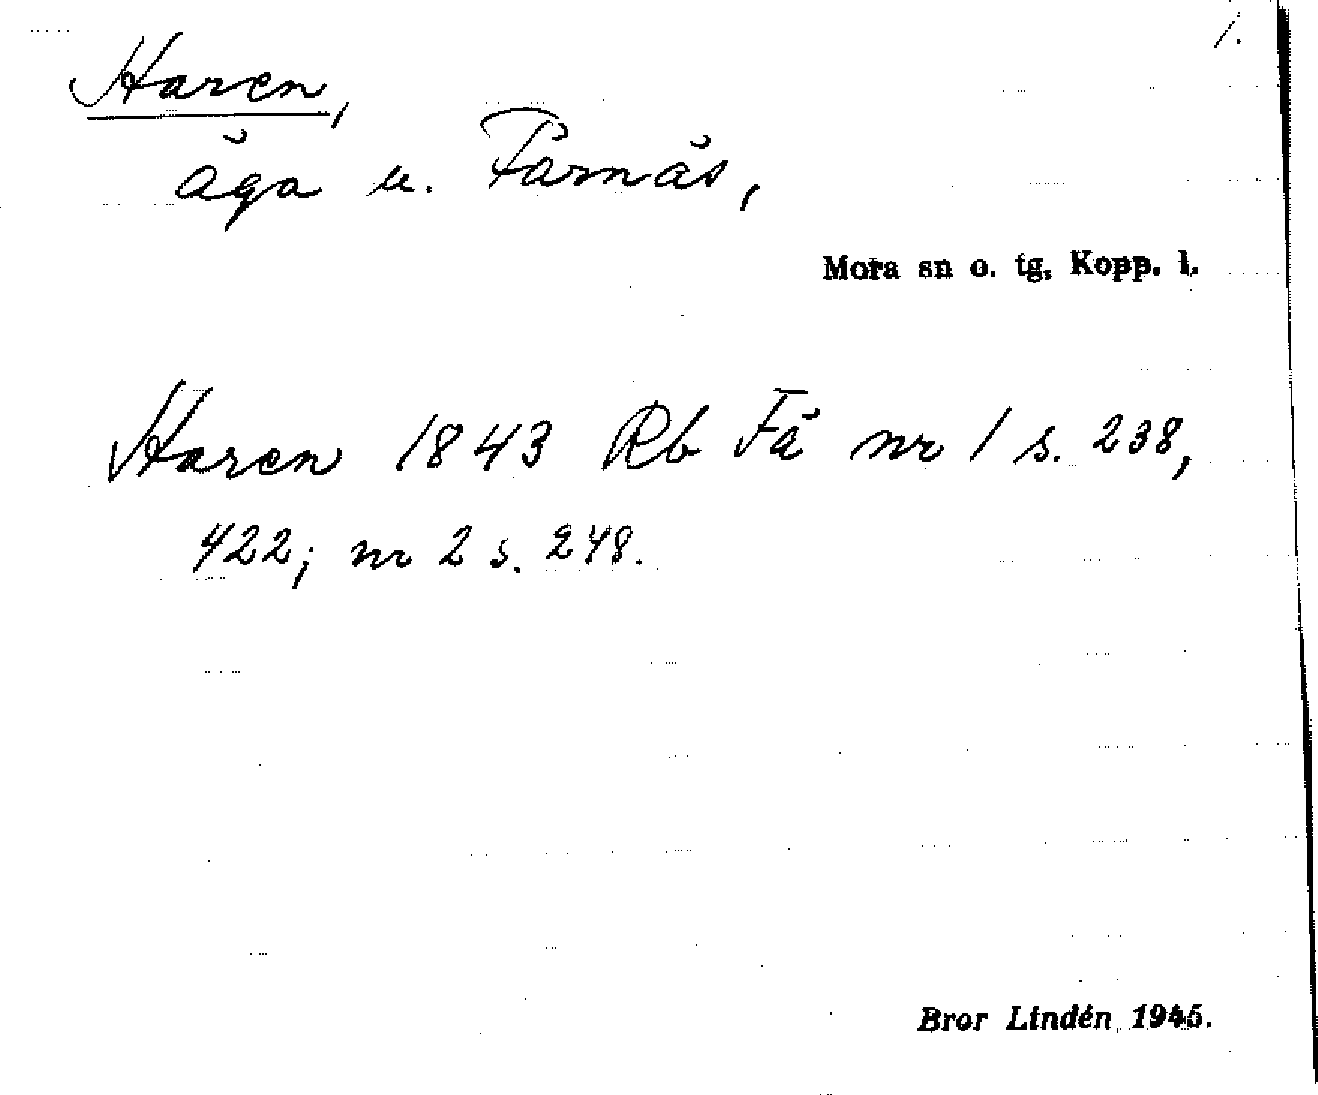 1.
Haren,
äga u. Färnäs,
Mora sn o. tg, Kopp. l.
Haren 1843 Rb Fä nr 1 s. 238,
422; nr 2 s. 248.
Bror Lindén 1945.